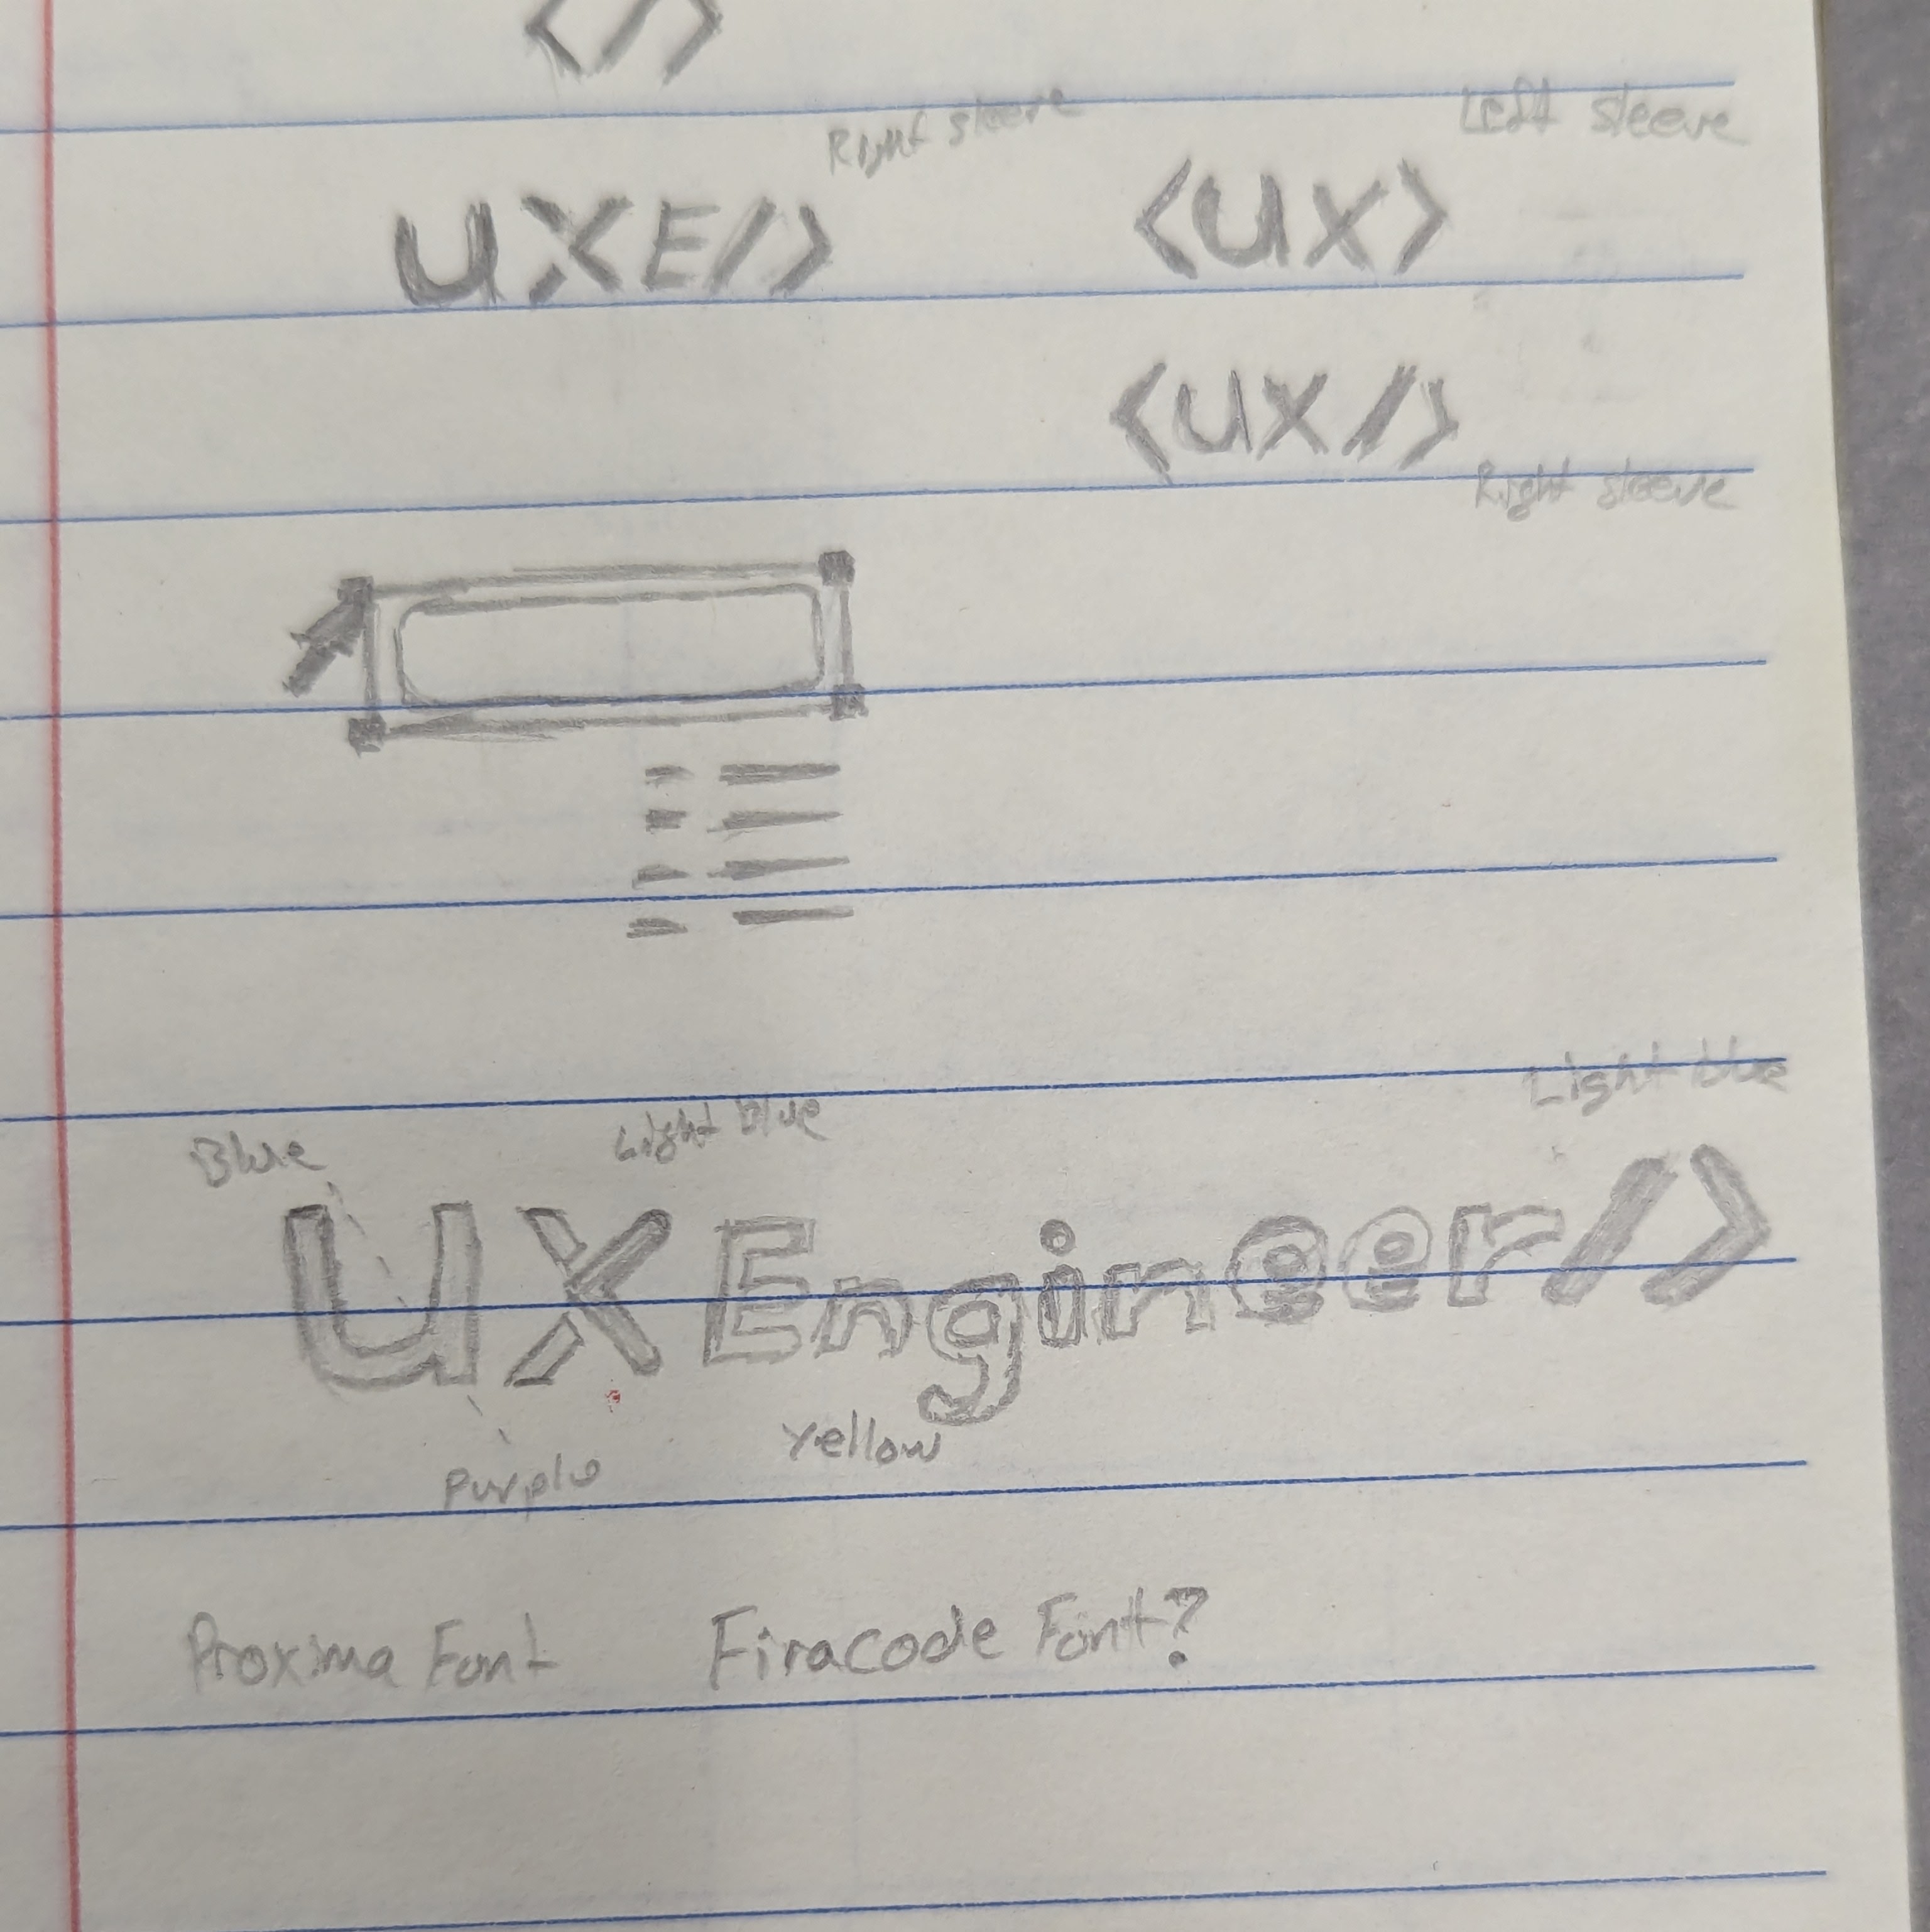 </>
Right sleeve
Left sleeve
UXE/>
<UX>
<UX/>
Right sleeve
Light blue
Blue
Light blue
UX Engineer/>
Yellow
Purple
Proxima Font
Firacode Font?